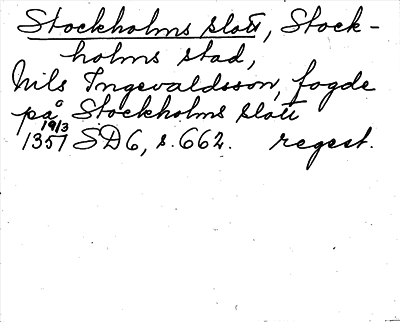 Stockholms slott, Stock-
holms stad,
Nils Ingevaldsson, fogde
på Stockholms slott
19/3
1357 SD6, s. 662. regest.